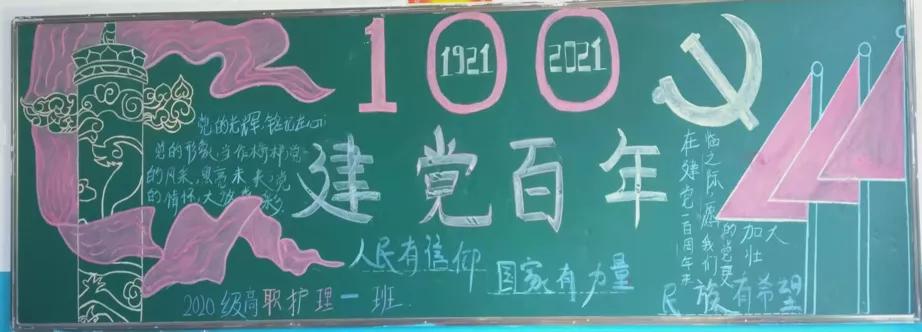 100
1921
2021
建党百年
党的光辉,铭记在心
党的形象,当作榜样党
的风采,照亮未来,党
的情怀,大放
人民有信仰
国家有力量
民族有希望
在建党一百周年来
临之际,愿我们
的党更
加壮
大
2020级高职护理一班